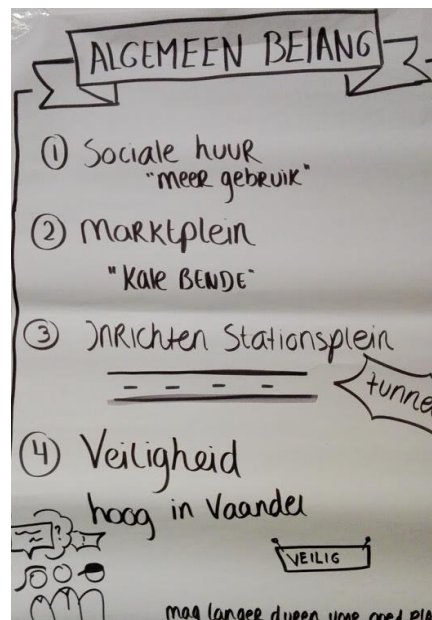 ALGEMEEN BELANG
① Sociale huur
"meer gebruik"
② Marktplein
"Kale BENDE"
③ Inrichten Stationsplein
tunnel
④ Veiligheid
hoog in Vaandel
VEILIG
mag langer duren voor goed